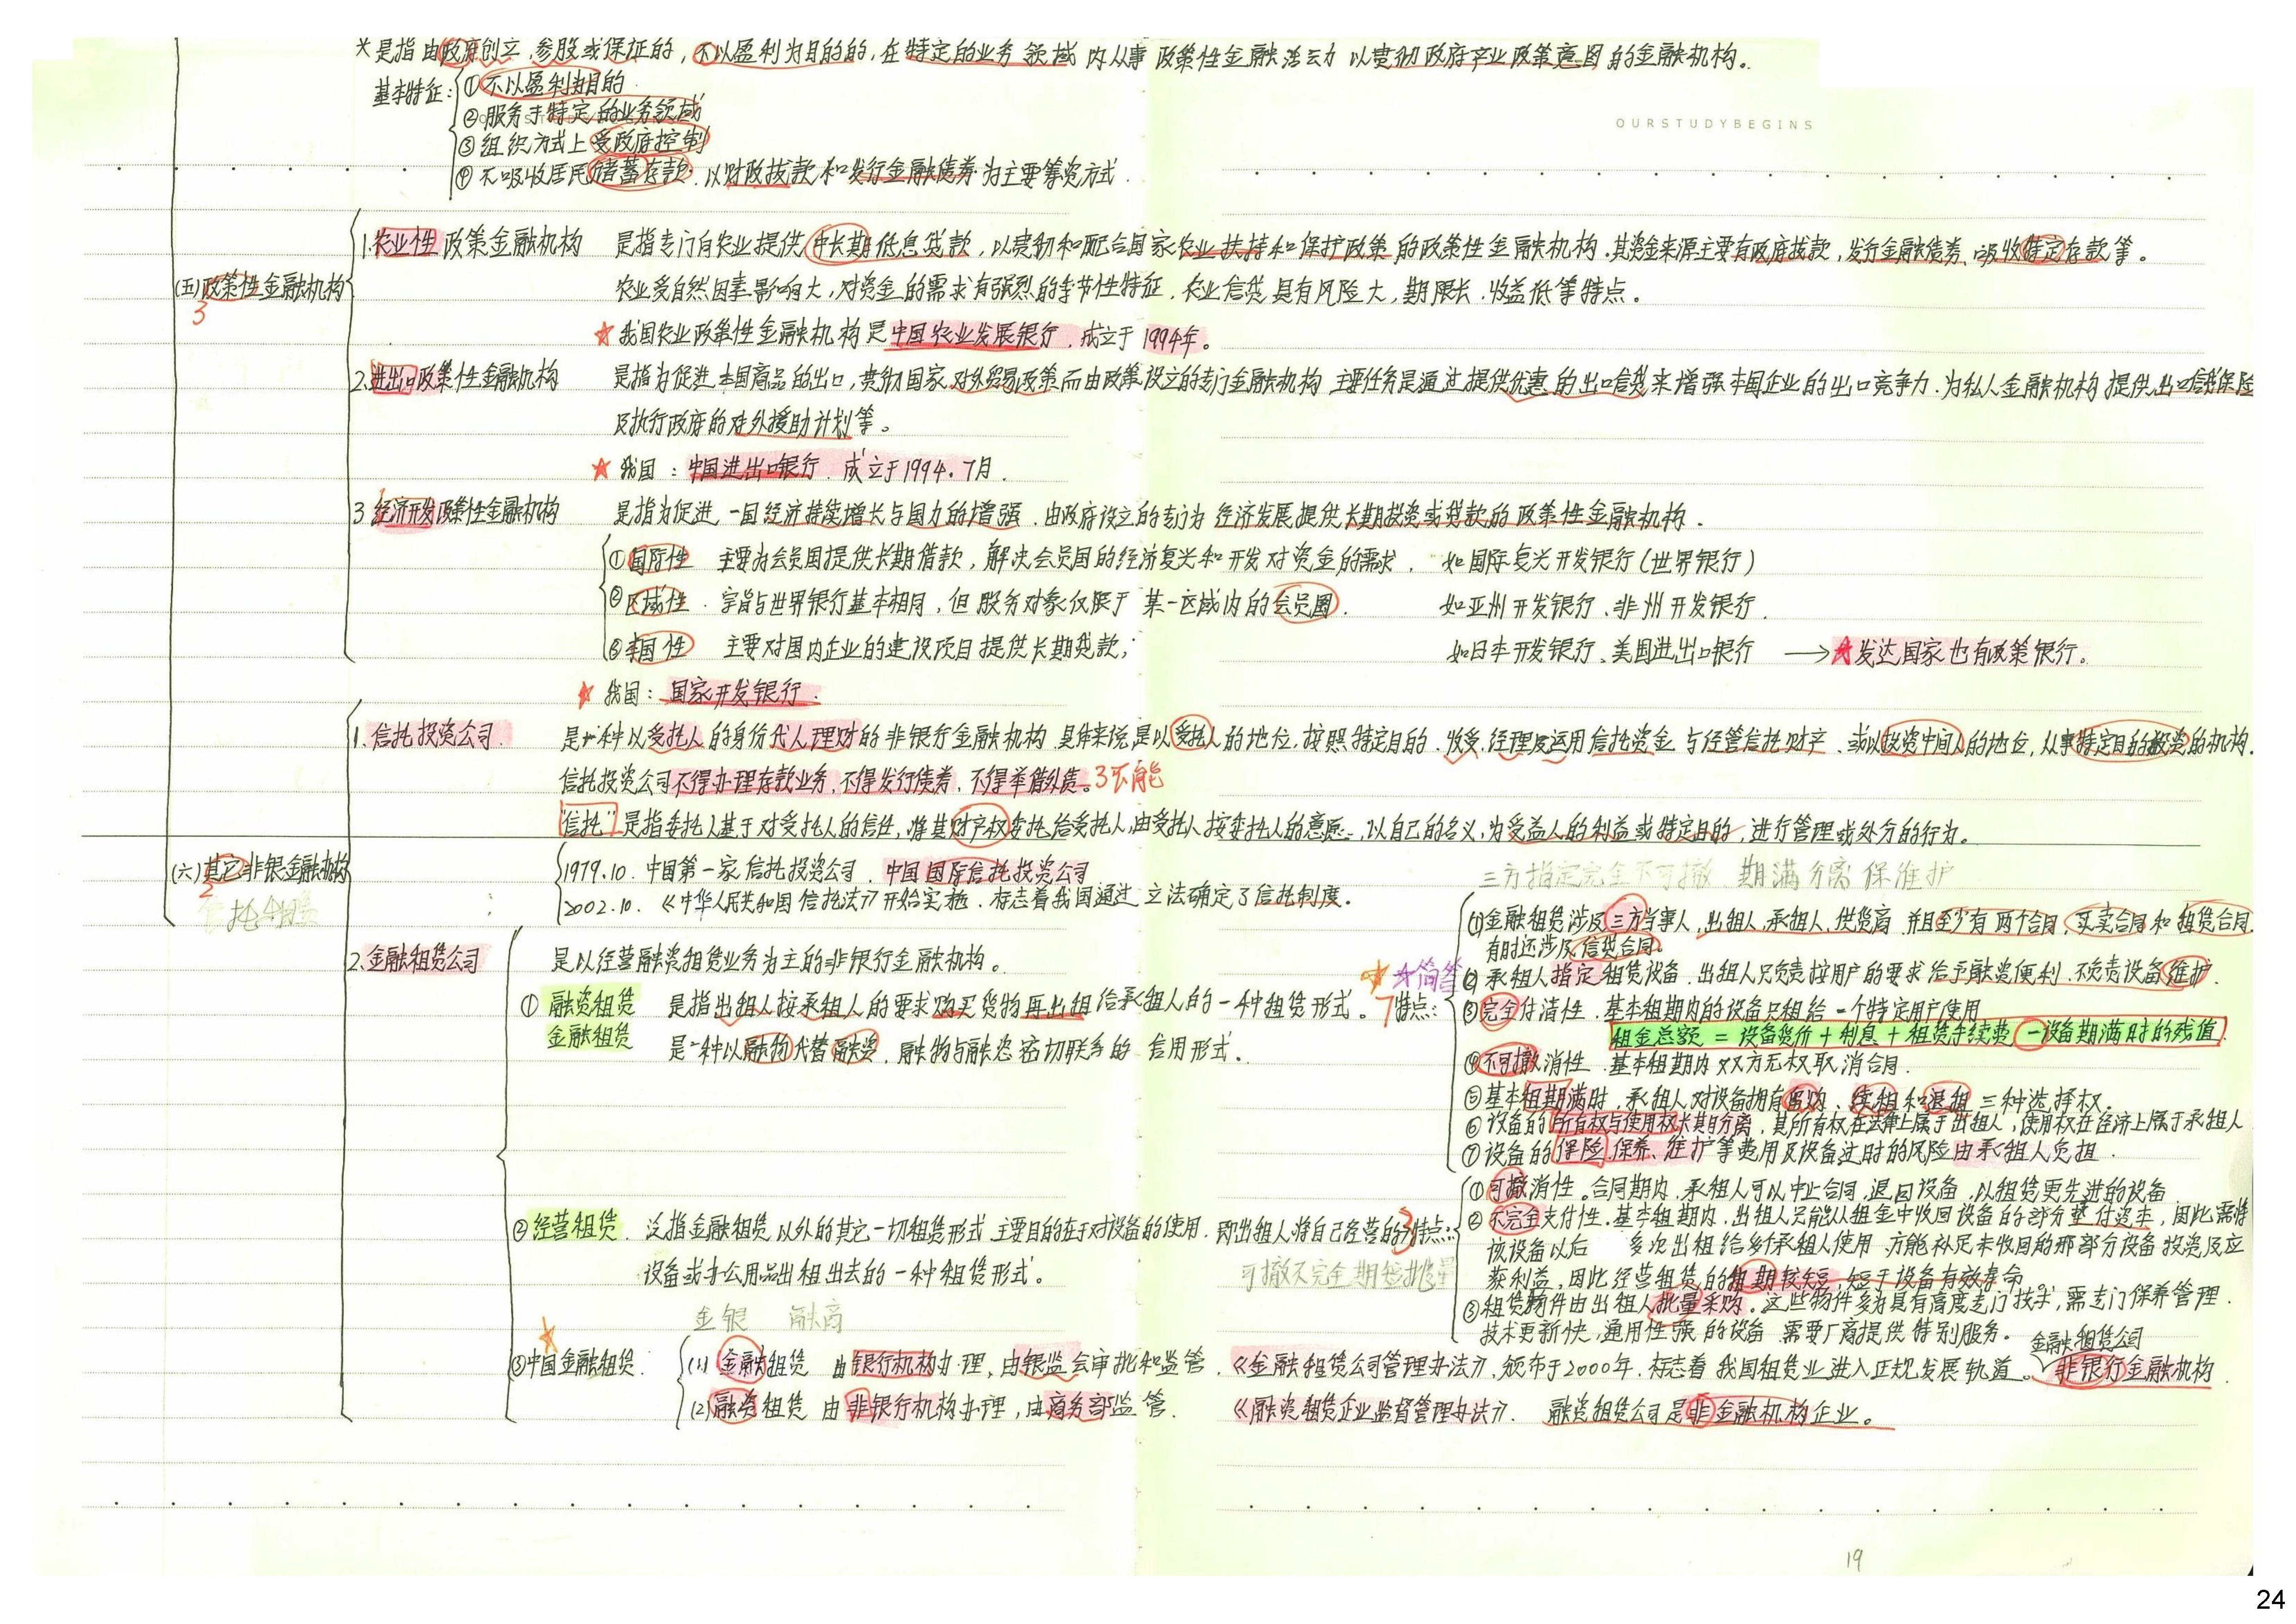 *是指由政府创立,参股或保证的,不以盈利为目的的,在特定的业务领域内从事政策性金融活动以贯彻政府产业政策意图的金融机构。
基本特征:①不以盈利为目的.
②服务于特定的业务领域
OURSTUDYBEGINS
③组织方式上受政府控制
④不吸收居民储蓄存款.以财政拨款和发行金融债券为主要筹资方式.
(五)政策性金融机构
3
1.农业性政策金融机构 是指专门向农业提供中长期低息贷款,以贯彻和配合国家农业扶持和保护政策的政策性金融机构.其资金来源主要有政府拨款,发行金融债券、吸收特定存款等。
农业受自然因素影响大,对资金的需求有强烈的季节性特征.农业信贷具有风险大,期限长.收益低等特点。
★我国农业政策性金融机构是中国农业发展银行.成立于1994年。
2.进出口政策性金融机构 是指为促进本国商品的出口,贯彻国家对外贸易政策而由政策设立的专门金融机构 主要任务是通过提供优惠的出口信贷来增强本国企业的出口竞争力.为私人金融机构提供出口信贷保险
及执行政府的对外援助计划等。
★我国:中国进出口银行.成立于1994.7月.
3经济开发政策性金融机构 是指为促进一国经济持续增长与国力的增强.由政府设立的专门为经济发展提供长期投资或贷款的政策性金融机构.
①国际性 主要为会员国提供长期借款,解决会员国的经济复兴和开发对资金的需求. 如国际复兴开发银行(世界银行)
②区域性.宗旨与世界银行基本相同,但服务对象仅限于某一区域内的会员国. 如亚洲开发银行、非州开发银行.
③本国性 主要对国内企业的建设项目提供长期贷款; 如日本开发银行、美国进出口银行 →★发达国家也有政策银行。
★我国:国家开发银行.
(六)其它非银金融机构
2
1.信托投资公司. 是一种以受托人的身份代人理财的非银行金融机构 具体来说是以受托人的地位,按照特定目的.收受.经理及运用信托资金与经管信托财产.或以投资中间人的地位,从事特定目的投资的机构.
信托投资公司不得办理存款业务,不得发行债券,不得举借外债。3不能
"信托"是指委托人基于对受托人的信任,将其财产权委托给受托人,由受托人按委托人的意愿,以自己的名义,为受益人的利益或特定目的,进行管理或处分的行为。
1979.10.中国第一家信托投资公司.中国国际信托投资公司
2002.10.《中华人民共和国信托法》开始实施.标志着我国通过立法确定了信托制度.
三方指定完全不可撤 期满分离保维护
2.金融租赁公司 是以经营融资租赁业务为主的非银行金融机构。
①融资租赁 是指出租人按承租人的要求购买货物再出租给承租人的一种租赁形式。
金融租赁 是一种以融物代替融资.融物与融资密切联系的信用形式.
★☆简答
7特点:
①金融租赁涉及三方当事人,出租人,承租人,供货商 并且至少有两个合同,买卖合同和租赁合同.
有时还涉及信贷合同。
② 承租人指定租赁设备.出租人只负责按用户的要求给予融资便利.不负责设备维护.
③完全付清性.基本租期内的设备只租给一个特定用户使用
租金总额=设备货价+利息+租赁手续费-设备期满时的残值
④不可撤消性.基本租期内双方无权取消合同.
⑤基本租期满时,承租人对设备拥有留购、续租和退租三种选择权.
⑥设备的所有权与使用权长期分离,其所有权在法律上属于出租人,使用权在经济上属于承租人
⑦设备的保险.保养、维护等费用及设备过时的风险由承租人负担.
②经营租赁. 泛指金融租赁以外的其它一切租赁形式 主要目的在于对设备的使用.即出租人将自己经营的
设备或办公用品出租出去的一种租赁形式。
3特点:
可撤不完全期短批量
①可撤消性。合同期内,承租人可以中止合同,退回设备.以租赁更先进的设备
②不完全支付性.基本租期内,出租人只能从租金中收回设备的部分垫付资本,因此需将
该设备以后 多次出租给多个承租人使用 方能补足未收回的那部分设备投资及应
获利益,因此经营租赁的租期较短.短于设备有效寿命
③租赁物件由出租人批量采购。这些物件多为具有高度专门技术,需专门保养管理.
技术更新快,通用性强的设备.需要厂商提供特别服务。
金银 融商
③中国金融租赁. (1)金融租赁 由银行机构办理,由银监会审批和监管.《金融租赁公司管理办法》,颁布于2000年.标志着我国租赁业进入正规发展轨道。 金融租赁公司 非银行金融机构.
(2)融资租赁 由非银行机构办理,由商务部监管. 《融资租赁企业监督管理办法》. 融资租赁公司是非金融机构企业。
19
24